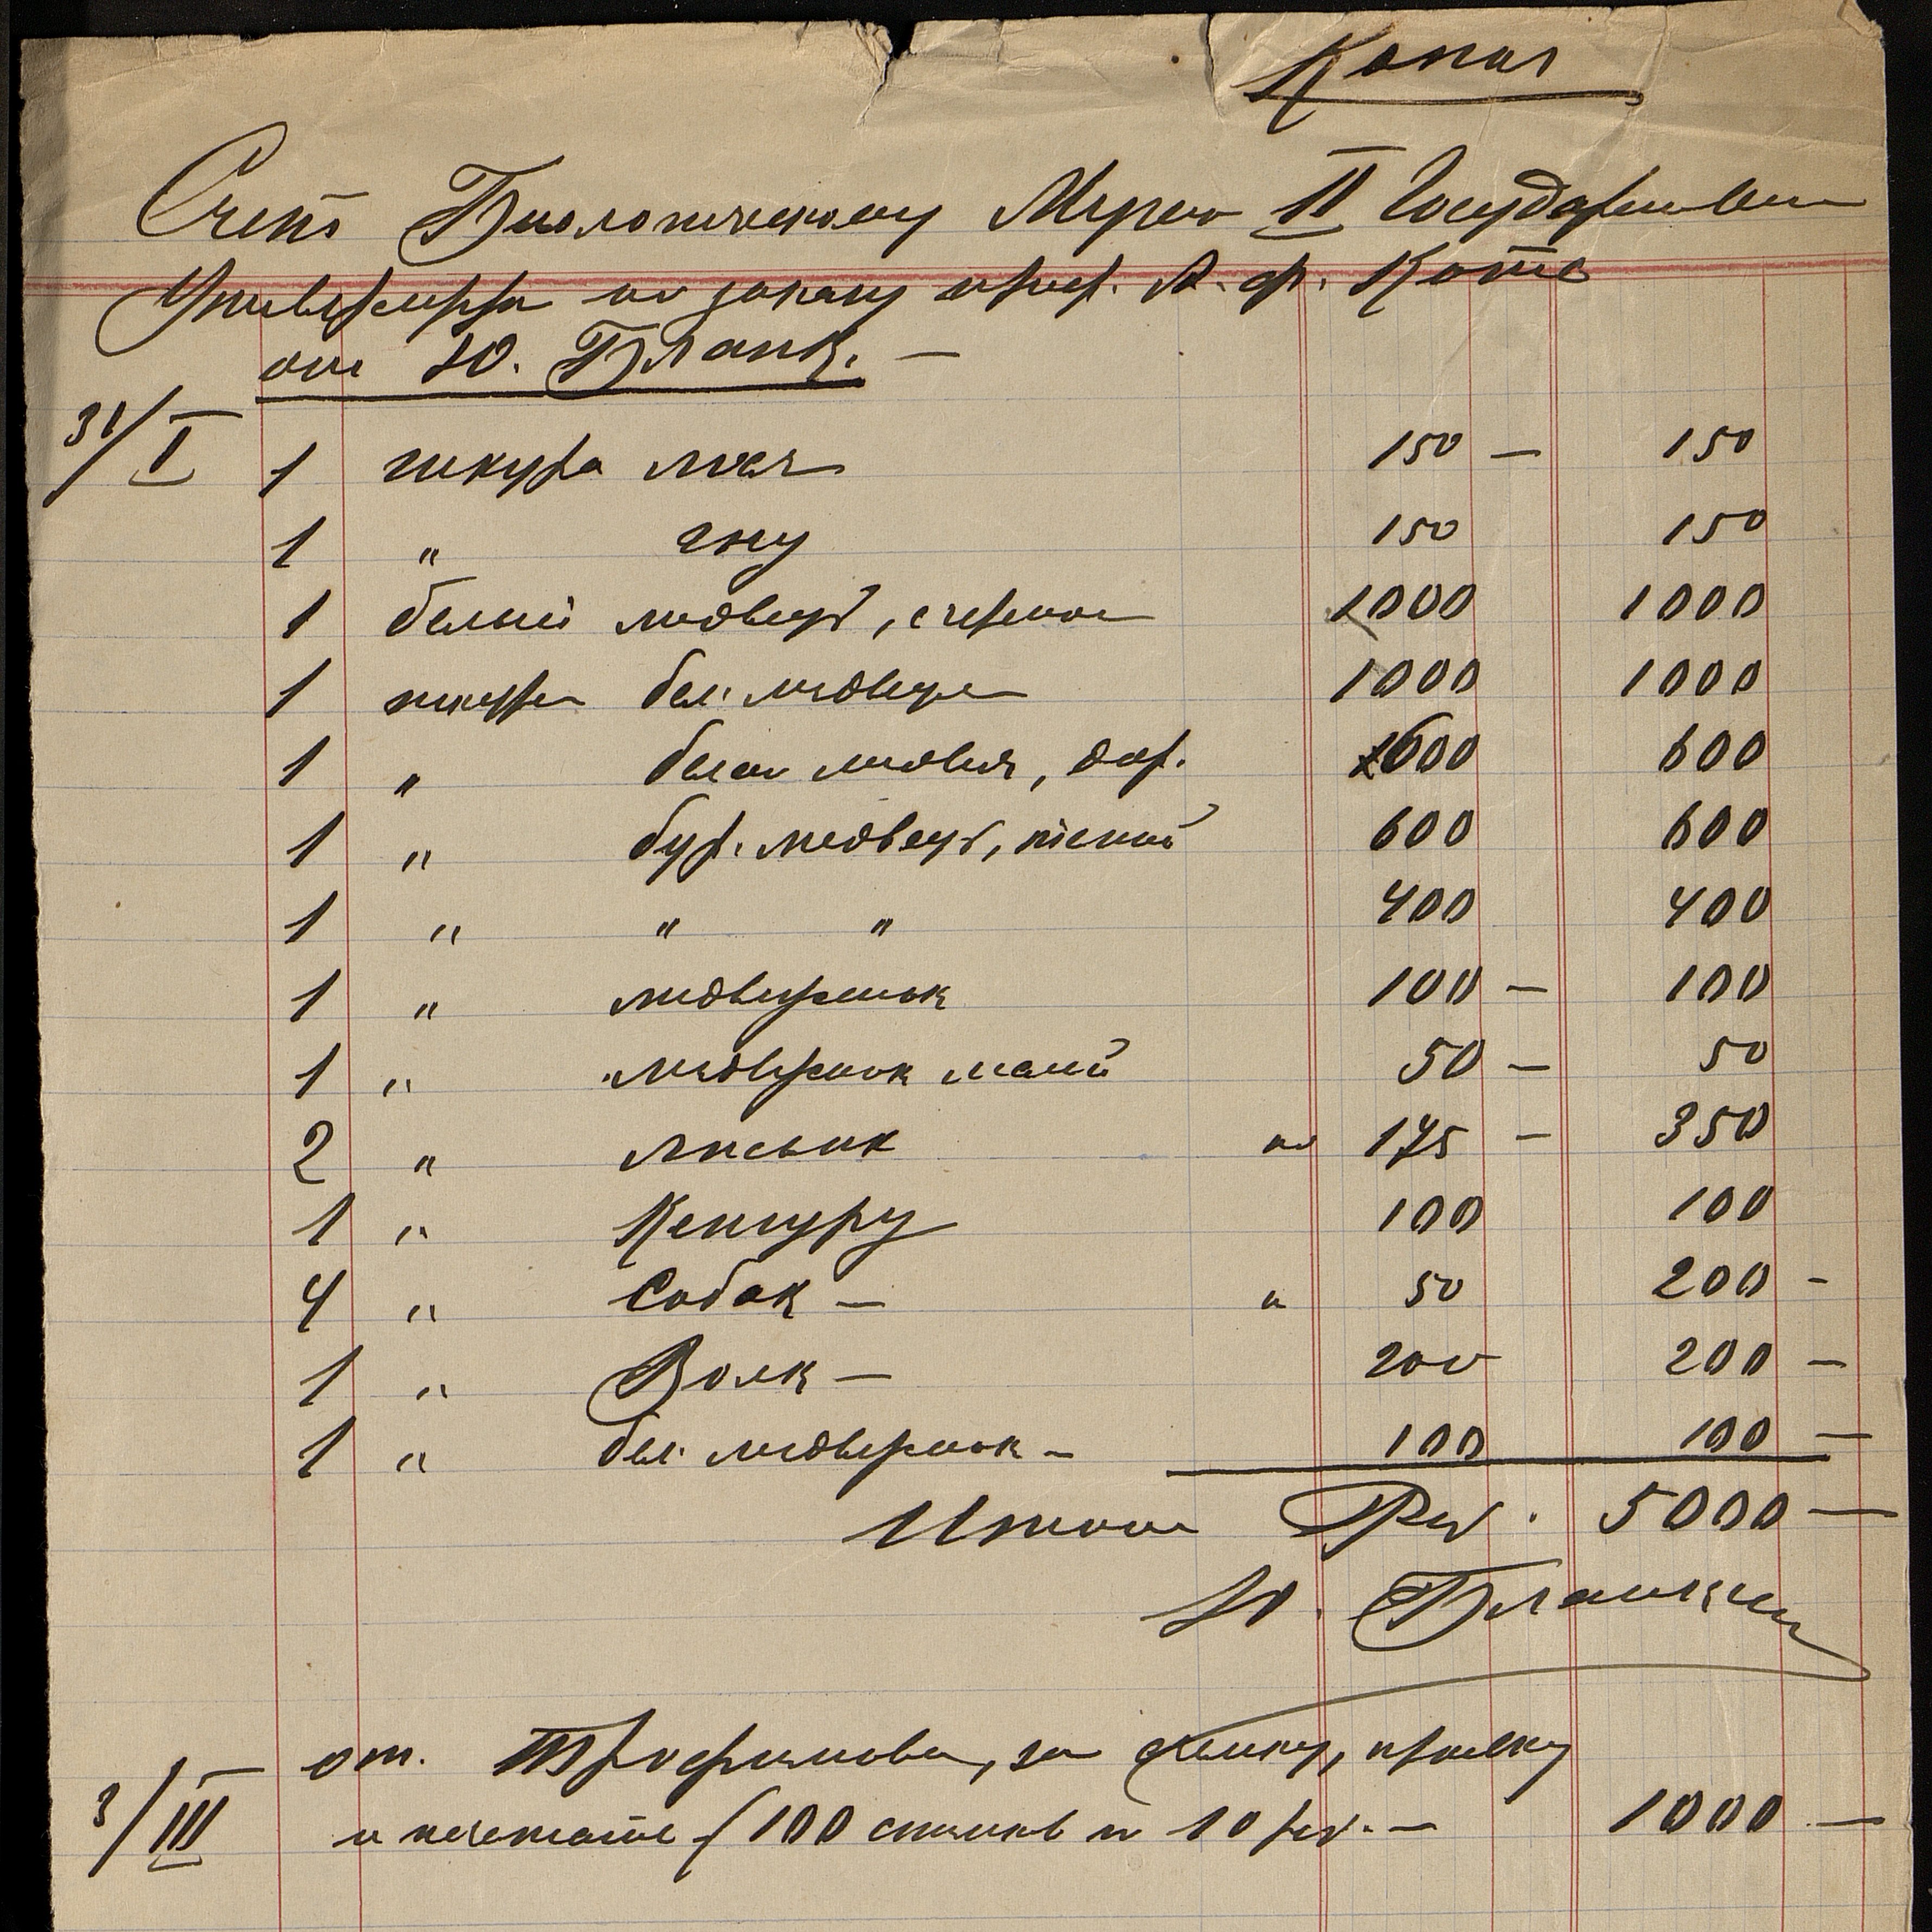 Копия
Счет Биологическому Музею II Государствен
Университета по заказу проф. А. Ф. Котс
от Ю. Бланк. —
31/I 1 шкура лося 150 — 150
1 " гну 150 150
1 белый медведь, с черепом 1000 1000
1 шкура бел. медведя 1000 1000
1 " белого медведя, 600 600
1 " бур. медведь, 600 600
1 " " " 400 400
1 " медвежонок 100 — 100
1 " медвежонок малый 50 — 50
2 " по 175 — 350
1 " Кенгуру 100 100
4 " Собак — " 50 200 —
1 " Волк — 200 200 —
1 " бел. медвежонок — 100 100 —
Итого Руб. 5000 —
Ю. Бланк
от. Трофимова, за
3/III 100 по 10 руб. — 1000 —